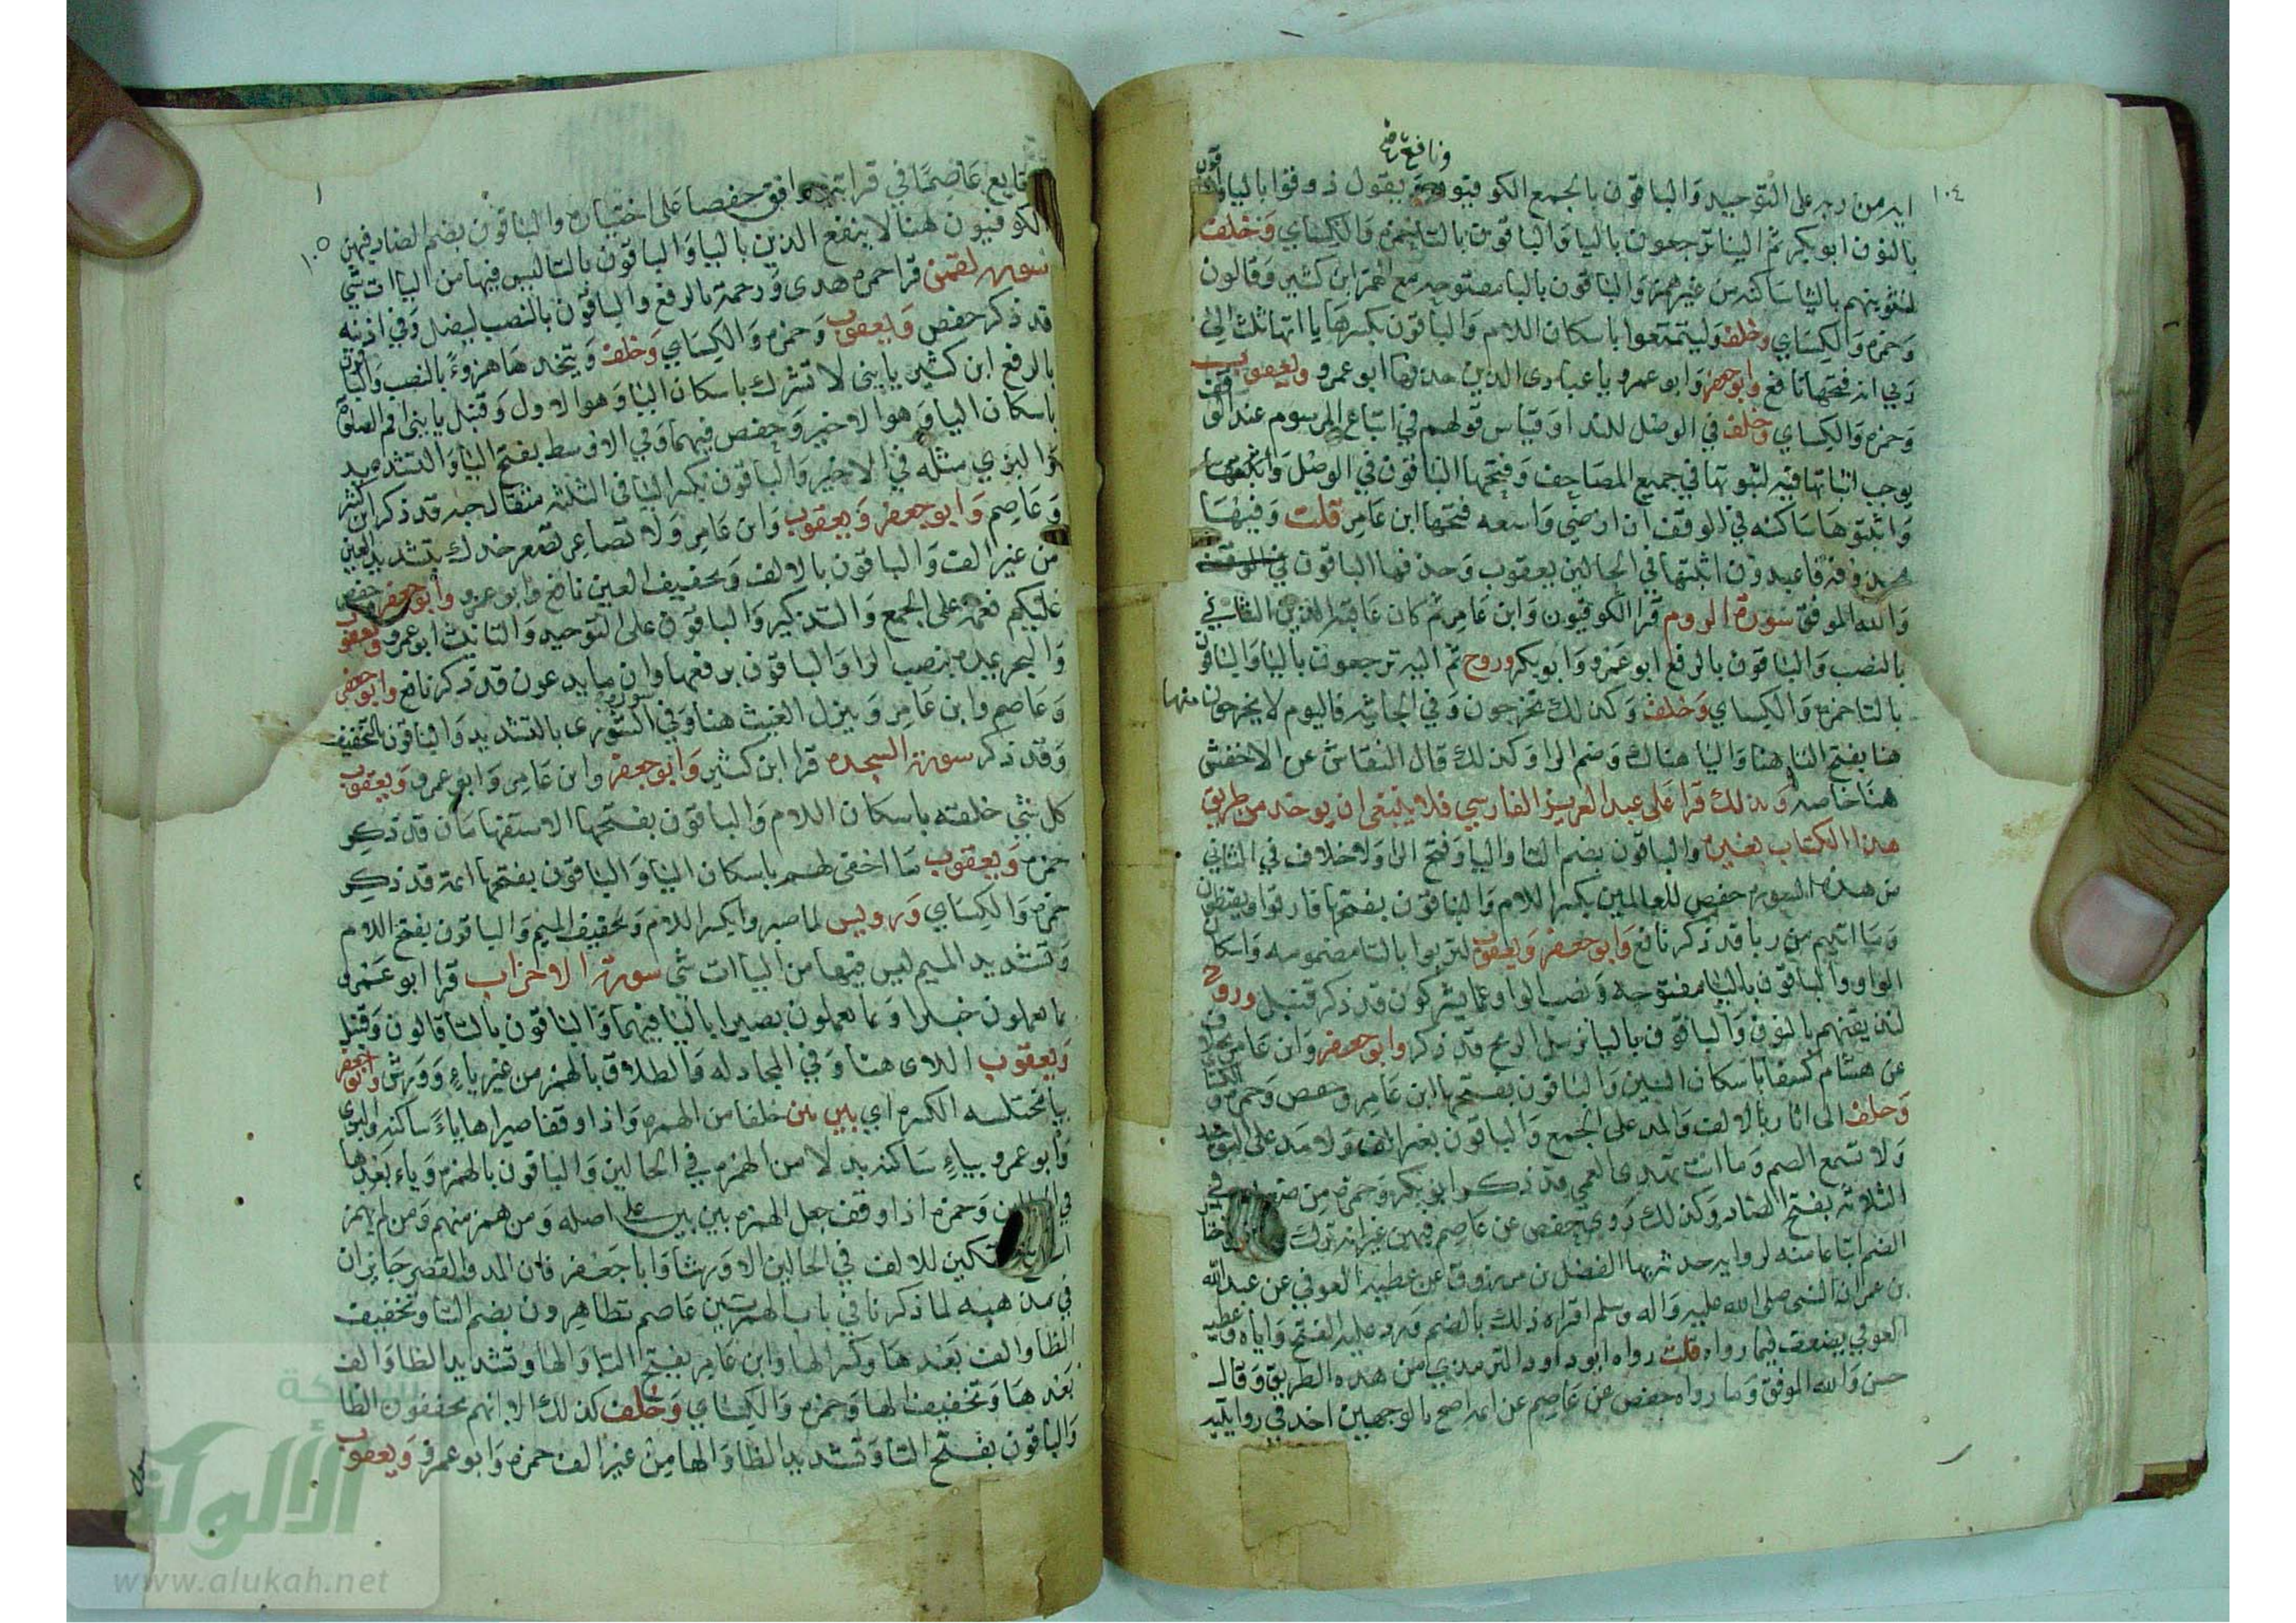 ونافع
١٠٤
اية من ربه على التوحيد والباقون بالجمع الكوفيون ويقول ذوقوا باليا والباقون
بالنون ابو بكر ثم الينا ترجعون باليا والباقون بالتا حمزه والكسائي وخلف
لنثوينهم بالثا ساكنه من غير همز والباقون بالبا مفتوحه مع الهمز ابن كثير وقالون
وحمزه والكسائي وخلف وليتمتعوا باسكان اللام والباقون بكسرها يا اتها ثلث الى
ربي انه فتحها نافع وابو جعفر وابو عمرو يا عبادى الذين حذفها ابو عمرو ويعقوب
وحمزه والكسائي وخلف في الوصل للندا وقياس قولهم في اتباع المرسوم عند الوقف
يوجب اثباتها فيه لثبوتها في جميع المصاحف وفتحها الباقون في الوصل
واثبتوها ساكنه في الوقف ان ارضي واسعه فتحها ابن عامر قلت وفيها
محذوفه فاعبدون اثبتها في الحالين يعقوب وحذفها الباقون
والله الموفق سورة الروم قرا الكوفيون وابن عامر ثم كان عاقبة الذين الثاني
بالنصب والباقون بالرفع ابو عمرو وابو بكر وروح ثم اليه ترجعون باليا والباقون
بالتا حمزه والكسائي وخلف وكذلك تخرجون وفي الجاثيه فاليوم لا يخرجون منها
هنا بفتح التا هنا واليا هناك وضم الرا وكذلك قال النقاش عن الاخفش
هنا خاصه وبذلك قرا على عبد العزيز الفارسي فلا ينبغى ان يوخذ من طريق
هذا الكتاب بغيره والباقون بضم التا واليا وفتح الرا ولا خلاف في الثاني
من هذه السوره حفص للعالمين بكسر اللام والباقون بفتحها فارقوا ويقنطون
وما اتيتم من ربا قد ذكر نافع وابو جعفر ويعقوب لتربوا بالتا مضمومه واسكان
الواو والباقون باليا مفتوحه ونصب الواو عما يشركون قد ذكر قنبل وروح
لنذيقنهم بالنون والباقون باليا نرسل الريح قد ذكر وابو جعفر وابن عامر
عن هشام كسفا باسكان السين والباقون بفتحها ابن عامر وحفص وحمزه والكسائي
وخلف الى اثار بالالف والمد على الجمع والباقون بغير الف ولا مد على التوحيد
ولا تسمع الصم وما انت تهدى العمى قد ذكر ابو بكر وحمزه من ضعف في
الثلاثه بفتح الضاد وكذلك روى حفص عن عاصم فيهن غير انه ترك
الضم اتباعا منه لروايه حدثه بها الفضل بن مرزوق عن عطيه العوفي عن عبد الله
بن عمر ان النبى صلى الله عليه واله وسلم اقراه ذلك بالضم ورد عليه الفتح واباه وعطيه
العوفي يضعف فيما رواه قلت رواه ابو داود والترمذي من هذه الطريق وقال
حسن والله الموفق وما رواه حفص عن عاصم عن ايمته اصح بالوجهين اخذ في روايته
١٠٥
عاصما في قراته ووافق حفصا على اختياره والباقون بضم الضاد فيهن
الكوفيون هنا لا ينفع الذين باليا والباقون بالتا ليس فيها من الياات شي
سورة لقمن قرا حمزه هدى ورحمة بالرفع والباقون بالنصب ليضل وفي اذنيه
قد ذكر حفص ويعقوب وحمزه والكسائي وخلف ويتخذها هزوءا بالنصب والباقون
بالرفع ابن كثير يا بنى لا تشرك باسكان اليا وهو الاول وقنبل يا بنى اقم الصلوة
باسكان اليا وهو الاخير وحفص فيهما وفي الاوسط بفتح اليا والتشديد
والبزي مثله في الاخير والباقون بكسر اليا في الثلثه مثقال حبه قد ذكر ابن كثير
وعاصم وابو جعفر ويعقوب وابن عامر ولا تصاعر تصعر خدك بتشديد العين
من غير الف والباقون بالالف وتخفيف العين نافع وابو عمرو وابو جعفر وحفص
عليكم نعمه على الجمع والتذكير والباقون على التوحيد والتانيث ابو عمرو ويعقوب
والبحر يمده بنصب الرا والباقون برفعها وان ما يدعون قد ذكر نافع وابو جعفر
وعاصم وابن عامر وينزل الغيث هنا وفي سورة الشورى بالتشديد والباقون بالتخفيف
وقد ذكر سورة السجده قرا ابن كثير وابو جعفر وابن عامر وابو عمرو ويعقوب
كل شي خلقه باسكان اللام والباقون بفتحها الاستفهامان قد ذكر
حمزه ويعقوب ما اخفى لهم باسكان اليا والباقون بفتحها ائمة قد ذكر
حمزه والكسائي ورويس لما صبروا بكسر اللام وتخفيف الميم والباقون بفتح اللام
وتشديد الميم ليس فيها من الياات شى سورة الاحزاب قرا ابو عمرو
بما يعملون خبيرا وبما يعملون بصيرا باليا فيهما والباقون بالتا قالون وقنبل
ويعقوب اللاى هنا وفي المجادله والطلاق بالهمز من غير ياء وورش وابو جعفر
بيا مختلسه الكسره اي بين بين خلفا من الهمزه واذا وقفا صيراها ياء ساكنه والبزى
وابو عمرو بياء ساكنه بدلا من الهمزه في الحالين والباقون بالهمزه وياء بعدها
في الحالين وحمزه اذا وقف جعل الهمزه بين بين على اصله ومن همز منهم ومن لم يهمز
التمكين للالف في الحالين الا ورشا وابا جعفر فان المد والقصر جايزان
في مذهبه لما ذكرنا في باب الهمزتين عاصم تظاهرون بضم التا وتخفيف
الظا والف بعدها وكسر الها وابن عامر بفتح التا والها وتشديد الظا والف
بعدها وتخفيف الها وحمزه والكسائي وخلف كذلك الا انهم يخففون الظا
والباقون بفتح التا وتشديد الظا والها من غير الف حمزه وابو عمرو ويعقوب
الألوكة
www.alukah.net